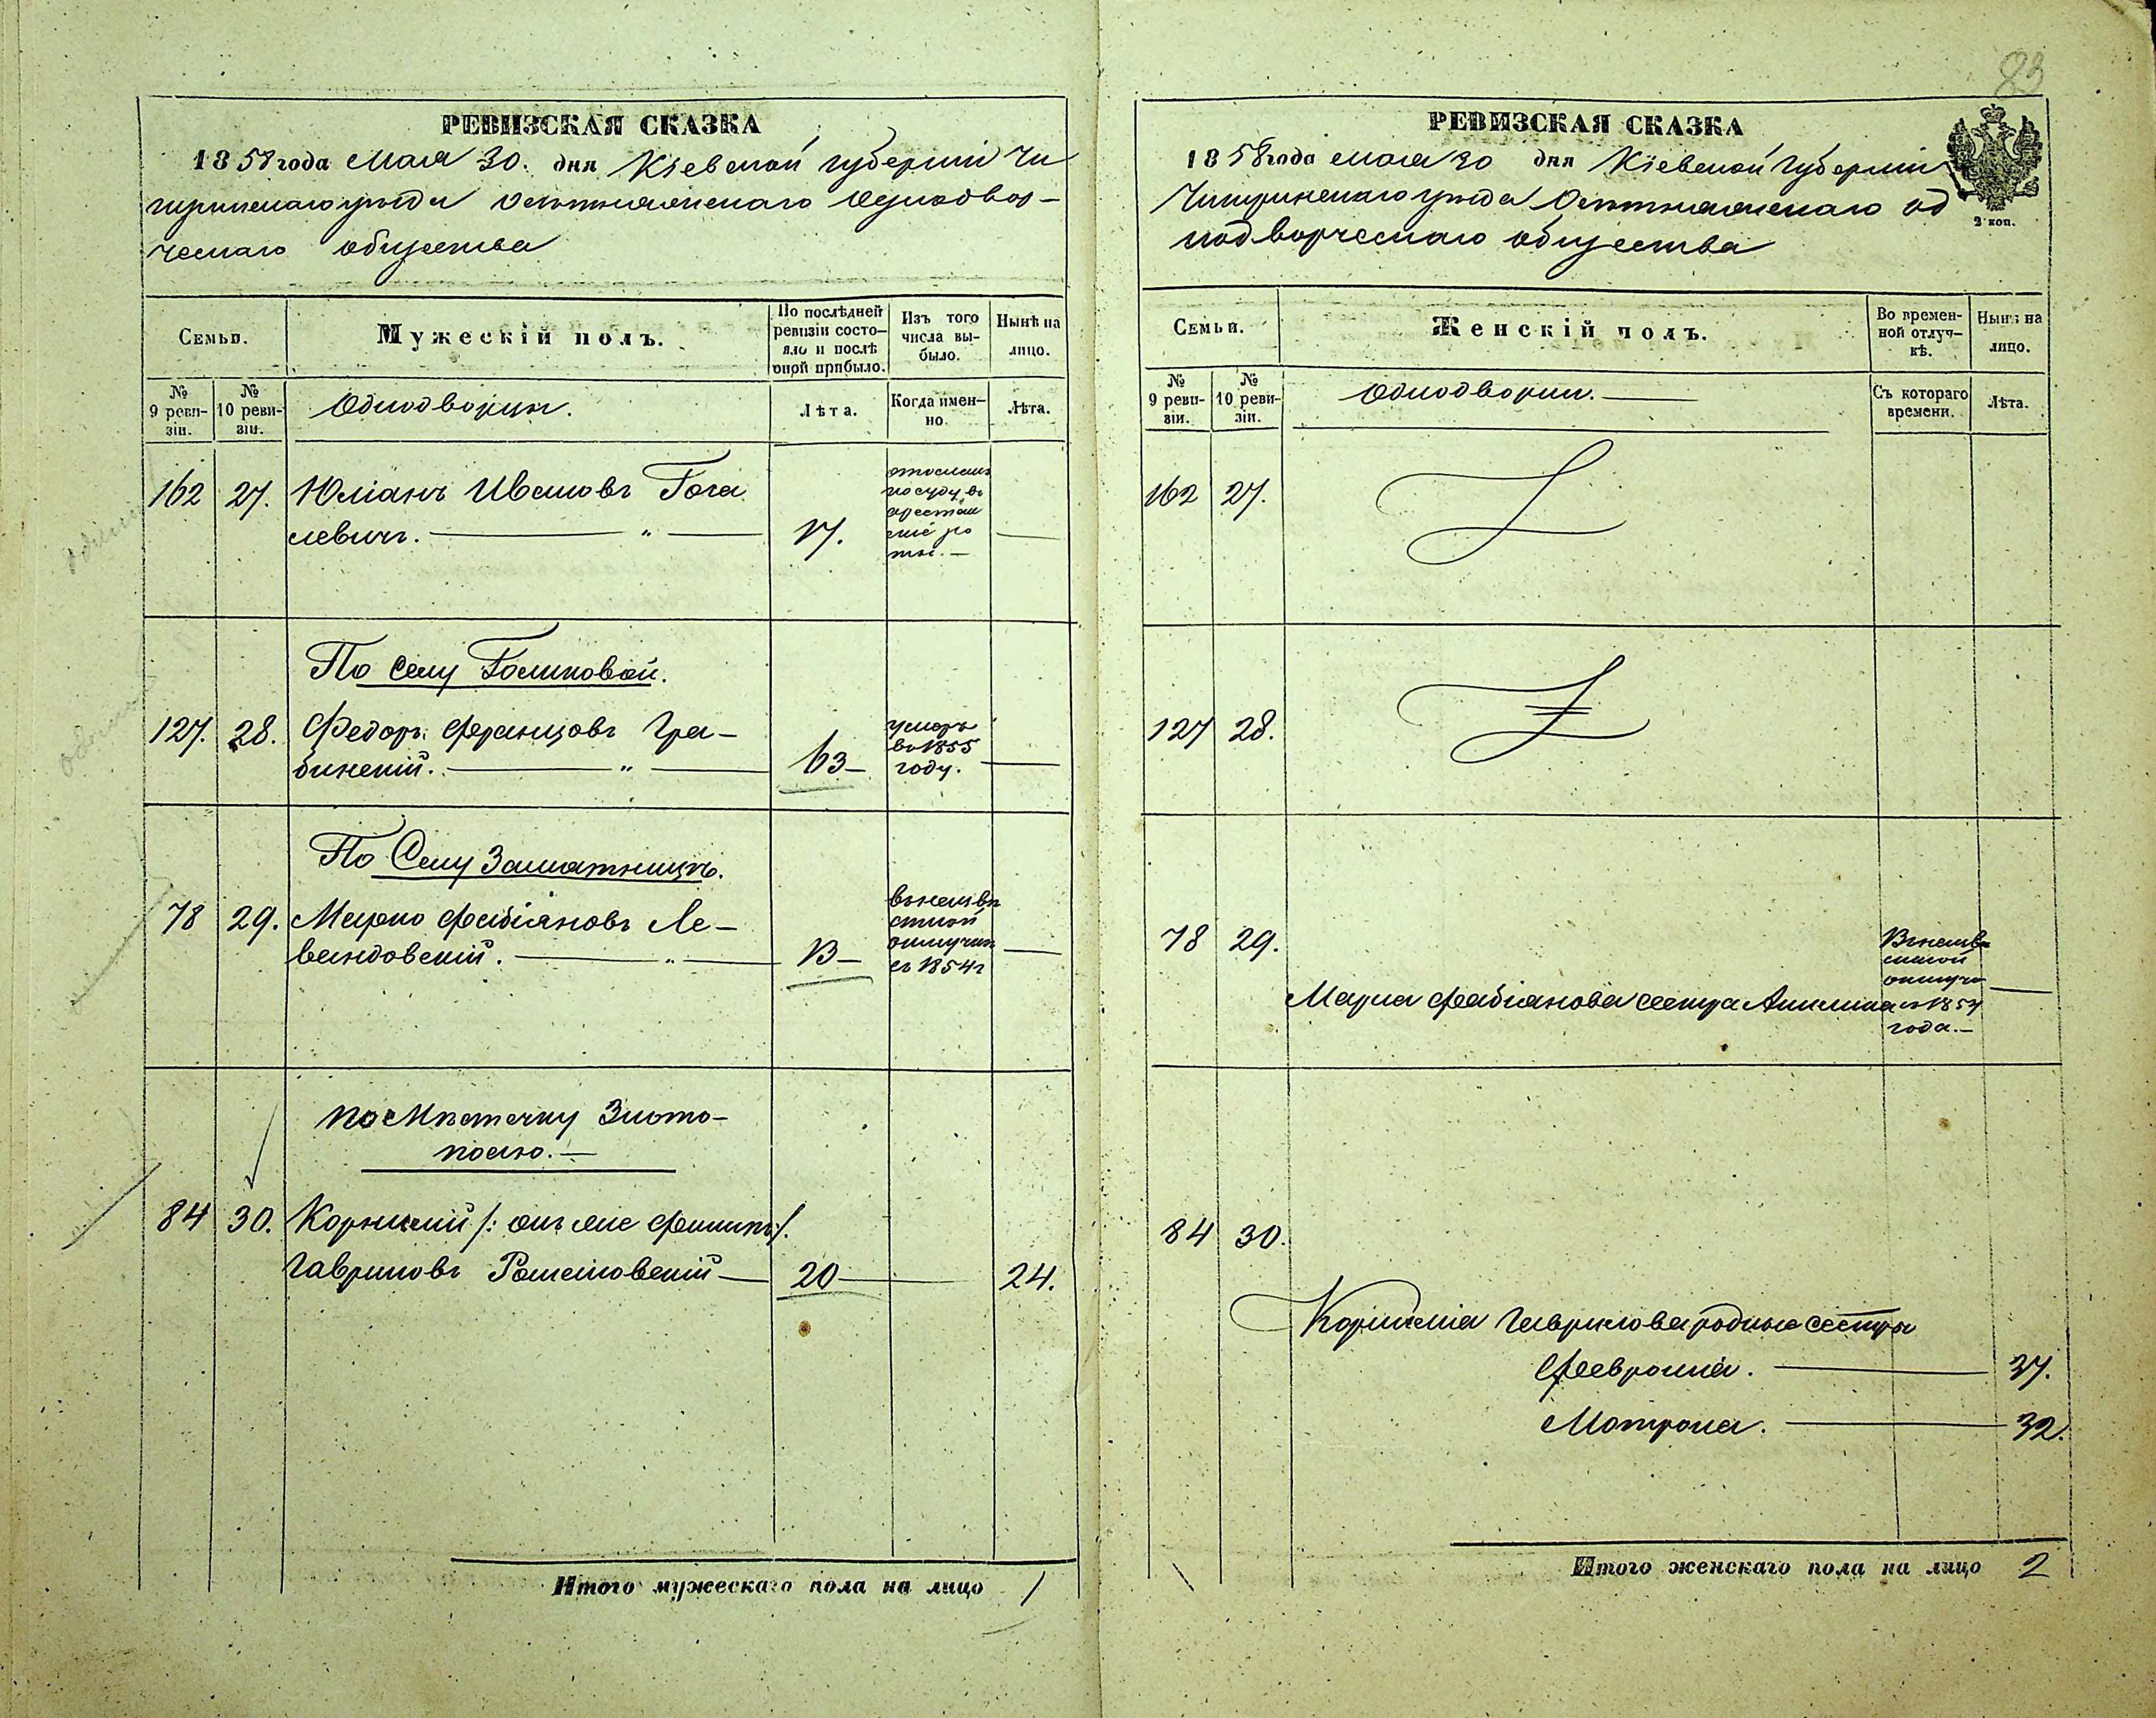 83
РЕВИЗСКАЯ СКАЗКА
1858 года Мая 30. дня Кіевской губерніи Чи
гиринскаго уѣзда Осотнянскаго Однодвор-
ческаго общества
Семьи.
Мужескій полъ.
По послѣдней ревизіи состо-
яло и послѣ
оной прибыло.
Изъ того
числа вы-
было.
Нынѣ на
лицо.
№
9 реви-
зіи.
№
10 реви-
зіи.
Однодворцы.
Лѣта.
Когда имен-
но.
Лѣта.
162 27. Юліанъ Ивановъ Гога
левичъ. — " — 17. —
отосланъ
по суду въ
арестан
скіе ро
ты. —
По Селу Голиковой.
127. 28. Федоръ Францовъ Гра-
бинскій. — " — 63 — —
умеръ
въ 1855
году.
По Селу Замятницѣ.
78 29. Марко Фабіяновъ Ле-
вандовскій. — " — 13 — —
въ неизвѣ
стной
отлучкѣ
съ 1854 г
по Мѣстечку Злото-
полю. —
84 30. Корнилий /: онъ же Филипъ :/.
Гавриловъ 20 — 24.
Итого мужескаго пола на лицо 1
РЕВИЗСКАЯ СКАЗКА
1858 года мая 30 дня Кіевской Губерніи
Чигиринскаго уѣзда Осотнянскаго од
нодворческаго общества
2 коп.
Семьи.
Женскій полъ.
Во времен-
ной отлуч-
кѣ.
Нынѣ на
лицо.
№
9 реви-
зіи.
№
10 реви-
зіи.
Однодворки. —
Съ котораго
времени.
Лѣта.
162 27.
127 28.
78 29.
Марка Фабіянова сестра —
Въ неизвѣ
стной
отлучкѣ
съ 1854
года. —
84 30.
Корнилія Гаврилова родные сестры
Феврония. — 37.
Мотрона. — 32.
Итого женскаго пола на лицо 2